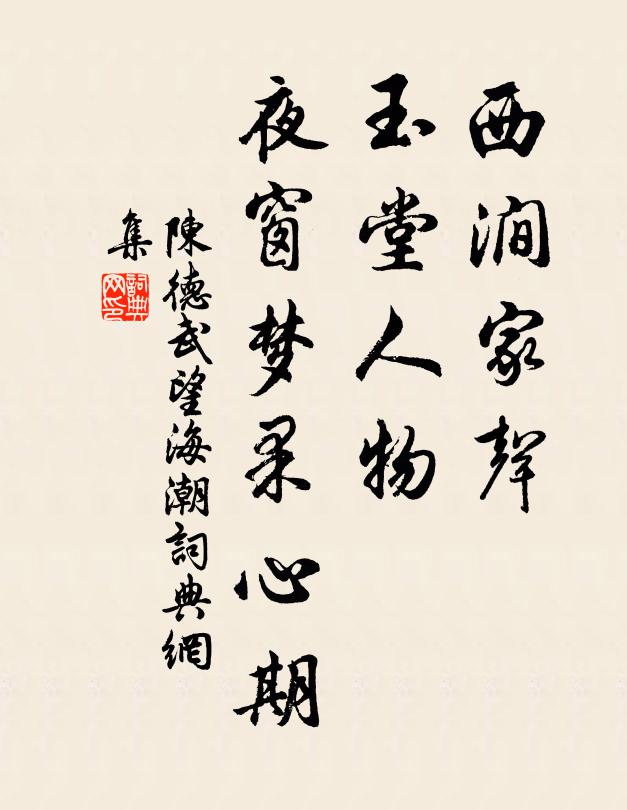 西澗家聲
玉堂人物
夜窗梦果心期
陳德武望海潮詞典網
集
詞典
网印